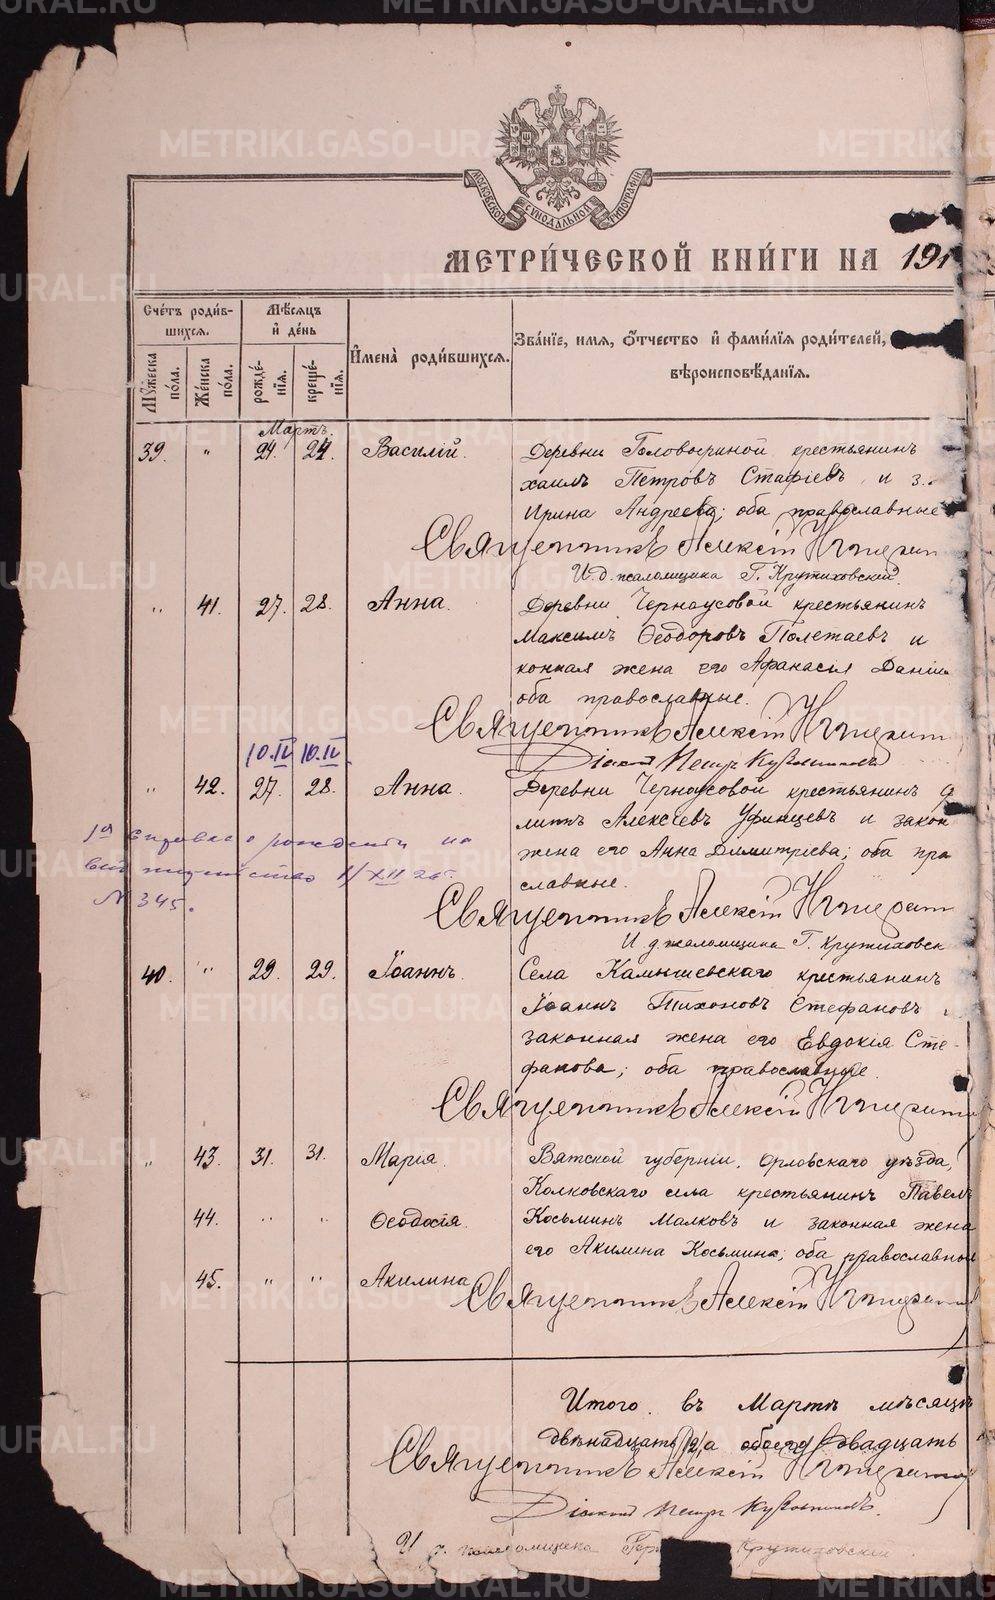 МОСКОВСКОЙ СѴНОДАЛЬНОЙ ТИПОГРАФІИ
МЕТРИ́ЧЕСКОЙ КНИ́ГИ НА 191
Сче́тъ роди́в-
шихся.
Му́жеска по́ла.
Же́нска по́ла.
Мѣ́сяцъ и де́нь
рожде́нія.
креще́нія.
Имена̀ роди́вшихся.
Зва́ніе, имя, о́тчество и фами́лія роди́телей,
вѣроисповѣ́данія.
Мартъ.
39. " 24. 24. Василій. Деревни Головыриной крестьянинъ
хаилъ Петровъ Стафіевъ и з
Ирина Андреева; оба православные
Священникъ Алексій
И. д. псаломщика Г. Крутиховский.
" 41. 27. 28. Анна. Деревни Черноусовой крестьянинъ
Максимъ Ѳеодоровъ Полетаевъ и
конная жена его Афанасія Даніи
оба православные.
Священникъ Алексій
Діаконъ Петръ
10.IV 10.IV.
" 42. 27. 28. Анна. Деревни Черноусовой крестьянинъ
митъ Алексіевъ Уфинцевъ и закон
жена его Анна Димитріева; оба пра
славные.
№ 345.
Священникъ Алексій
И д псаломщика Г. Крутиховск
40. " 29. 29. Іоаннъ. Села Камышевскаго крестьянинъ
Іоаннъ Тихоновъ Стефановъ
законная жена его Евдокія Сте-
фанова; оба православные.
Священникъ Алексій
" 43. 31. 31. Марія. Вятской губерніи, Орловскаго уѣзда,
Колковскаго села крестьянинъ Павелъ
44. " " Ѳеодосія. Косьминъ Малковъ и законная жена
его Акилина Косьмина; оба православной
45. " " Акилина
Священникъ Алексій
Итого въ Мартѣ мѣсяцѣ
двѣнадцать (12) а обоего двадцать
Священникъ Алексій
Діаконъ Петръ
псаломщика Крутиховский.
METRIKI.GASO-URAL.RU